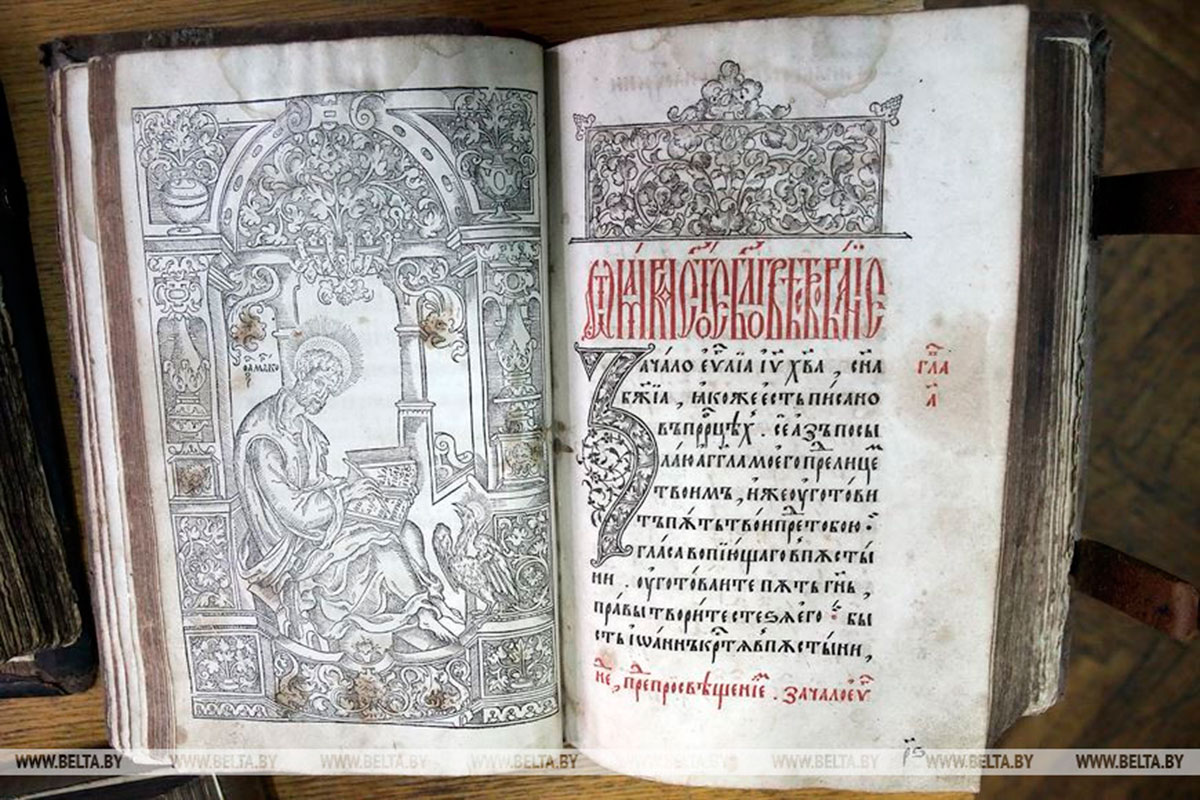 ѿ мⷬ҇ка ст҃ое бл҃говѣствованїе
Зачало еѵⷢ҇лїа і҃ѵ х҃ва , сн҃а
бж҃їа , ꙗкоже есть писано
въ прⷪ҇рцѣхъ . се азъ посы
лаю агг҃ла моего пред лицеⷨ
твоимъ , иже оуготови
тъ пѫть твои пред тобою :
гласъ вопїющаго в пѫсты
ни . оуготоваите пѫть гн҃ь ,
правы творите стеѕѧ его : бы
сть іѡаннъ крⷭ҇тѧ в пѫстыни ,
гла҃
а҃
не , преⷣ просвѣщенїеⷨ . зачало еѵⷢ҇
WWW.BELTA.BY WWW.BELTA.BY WWW.BELTA.BY WWW.BELTA.BY WWW.BELTA.BY